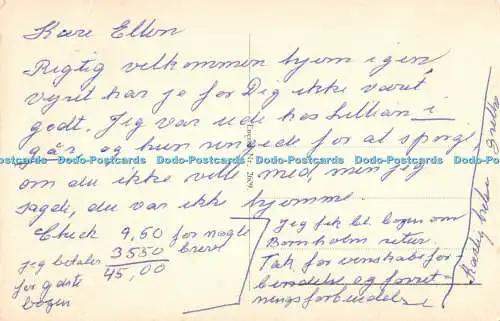 Kære Ellen
Rigtig velkommen hjem igen,
vejret har jo for Dig ikke været
godt. Jeg var ude hos Lillian i
går, og hun ringede for at spørge
om du ikke ville med men jeg
sagde, du var ikke hjemme
Chick 9,50 for nogle
breve
jeg betaler 35 50
45,00
for gæste
bogen
Jeg fik bl. bogen om
Bornholm retur.
Tak for venskabsfor-
bindelse og forret-
ningsforbindelse
Kærlig hilsen Grethe
Dodo-Postcards Dodo-Postcards Dodo-Postcards Dodo-Postcards Dodo-Postcards